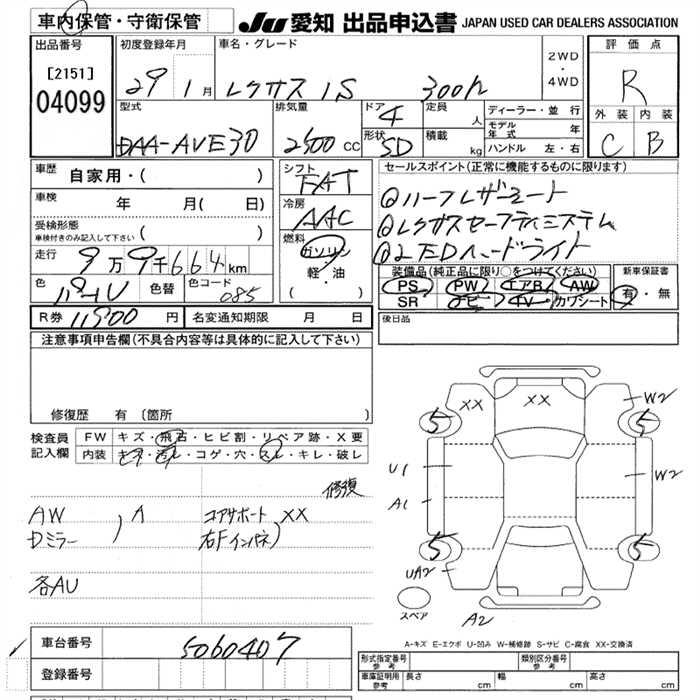 車内保管・守衛保管
JU 愛知 出品申込書 JAPAN USED CAR DEALERS ASSOCIATION
出品番号
[2151]
04099
初度登録年月
29年 1月
車名・グレード
レクサス IS 300h
2WD
・
4WD
評価点
R
外装 内装
C B
型式
DAA-AVE30
排気量
2500 CC
ドア
4
形状
5D
定員
人
積載
kg
ディーラー・並 行
モデル年式 年
ハンドル 左・右
車歴
自家用・( )
車検
年 月( 日)
受検形態
車検付きのみ記入して下さい
( )
走行
9万9千664km
色
パール
色替
色コード
085
シフト
FAT
冷房
AAC
燃料
ガソリン
軽・油
( )
セールスポイント(正常に機能するものに限ります)
①ハーフレザーシート
②レクサスセーフティシステム
③LEDヘッドライト
装備品(純正品に限り○をつけてください)
PS PW エアB AW
SR ナビ TV カワシート
新車保証書
有・無
R券 11500 円
名変通知期限 月 日
後日品
注意事項申告欄(不具合内容等は具体的に記入して下さい)
修復歴 有 〔箇所 〕
検査員記入欄
FW キズ・飛石・ヒビ割・リペア跡・X要
内装 キズ・汚レ・コゲ・穴・スレ・キレ・破レ
修復
AW
Dミラー
) A
コアサポート
右Fインパネ
) XX
各AU
XX
XX
W2
5
5
U1
A1
W2
5
5
UA2
A2
スペア
A-キズ E-エクボ U-凹み W-補修跡 S-サビ C-腐食 XX-交換済
車台番号
5060407
登録番号
形式指定番号
参考
類別区分番号
参考
車庫証明用
参考
長さ cm
幅 cm
高さ cm